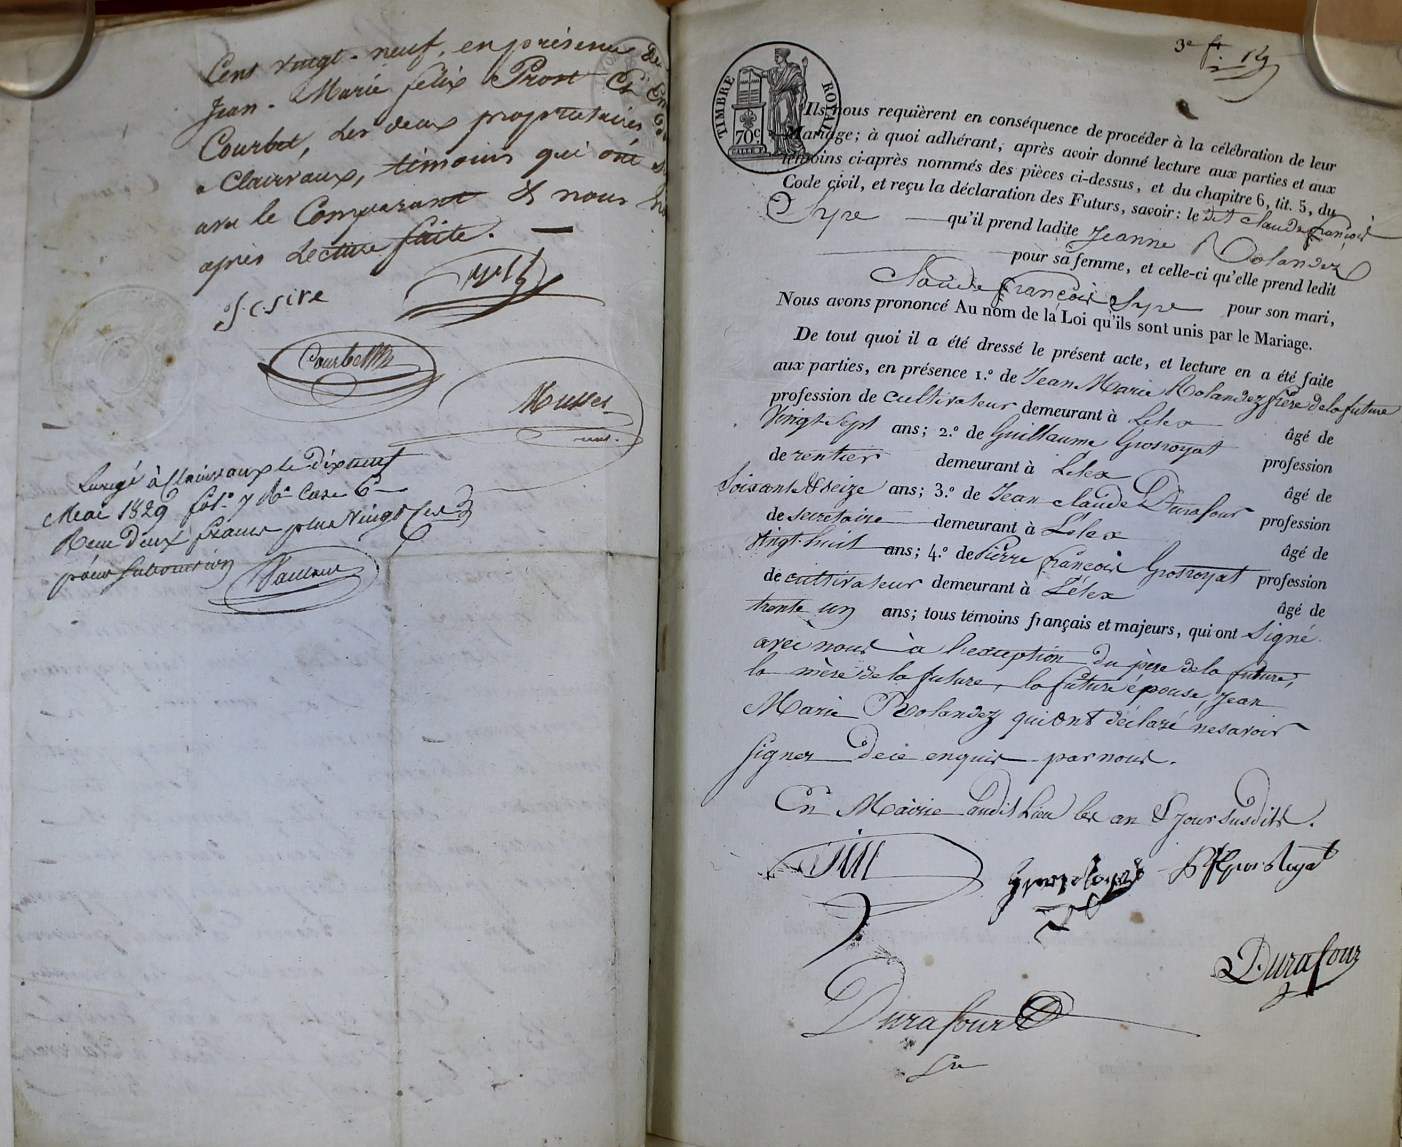 Cent vingt-neuf, en présence de
Jean-Marie félix Prost Et
Courbet, les deux propriétaires
a Clairvaux, témoins qui ont
avec le Comparant Et nous
après Lecture faite. —
Courbet
Musset
Enregé à Clairvaux le dix neuf
Mai 1829 fol. 7 Ro Case 6
Reçu Deux francs plus Vingt
pour subvention
3e ft 19
TIMBRE ROYAL
70c
Ils nous requièrent en conséquence de procéder à la célébration de leur
Mariage; à quoi adhérant, après avoir donné lecture aux parties et aux
témoins ci-après nommés des pièces ci-dessus, et du chapitre 6, tit. 5, du
Code civil, et reçu la déclaration des Futurs, savoir: le dit Claude françois
Syre qu'il prend ladite Jeanne Rolandez
pour sa femme, et celle-ci qu'elle prend ledit
Claude françois Syre pour son mari,
Nous avons prononcé Au nom de la Loi qu'ils sont unis par le Mariage.
De tout quoi il a été dressé le présent acte, et lecture en a été faite
aux parties, en présence 1.º de Jean Marie Rolandez frère de la future
profession de cultivateur demeurant à Lélex âgé de
Vingt sept ans; 2.º de Guillaume Grosroyat profession
de rentier demeurant à Lélex âgé de
Soixante & seize ans; 3.º de Jean claude Durafour profession
de secretaire demeurant à Lélex âgé de
Vingt-huit ans; 4.º de Pierre françois Grosroyat profession
de cultivateur demeurant à Lélex âgé de
trente un ans; tous témoins français et majeurs, qui ont Signé
avec nous à l'exception du père de la future,
la mère de la future, la future épouse, Jean
Marie Rolandez qui ont déclaré ne savoir
signer de ce enquis par nous.
En Mairie audit Lieu les an & jour susdits.
Durafour
Durafour